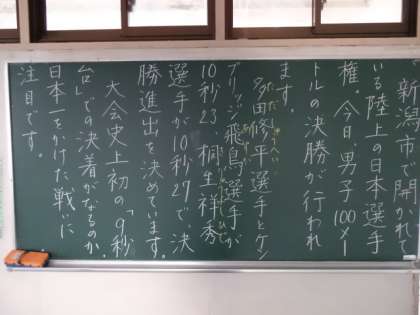 新潟市で開かれて
いる陸上の日本選手
権。今日、男子100メー
トルの決勝が行われ
ます。
多田修平選手とケン
ブリッジ飛鳥選手が
10秒23、桐生祥秀
選手が10秒27で、決
勝進出を決めています。
大会史上初の「9秒
台」での決着がなるのか。
日本一をかけた戦いに
注目です。